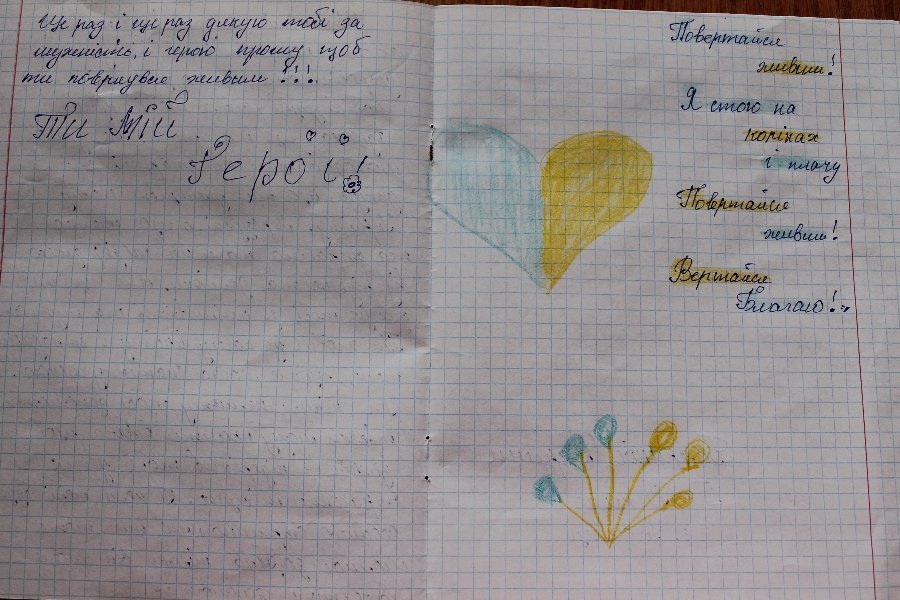 Ще раз і ще раз дякую тобі за
мужність, і герою прошу щоб
ти повернувся живым!!!
Ти мій
Герой!
Повертайся
живим!
Я стою на
колінах
і плачу
Повертайся
живим!
Вертайся
Благаю!